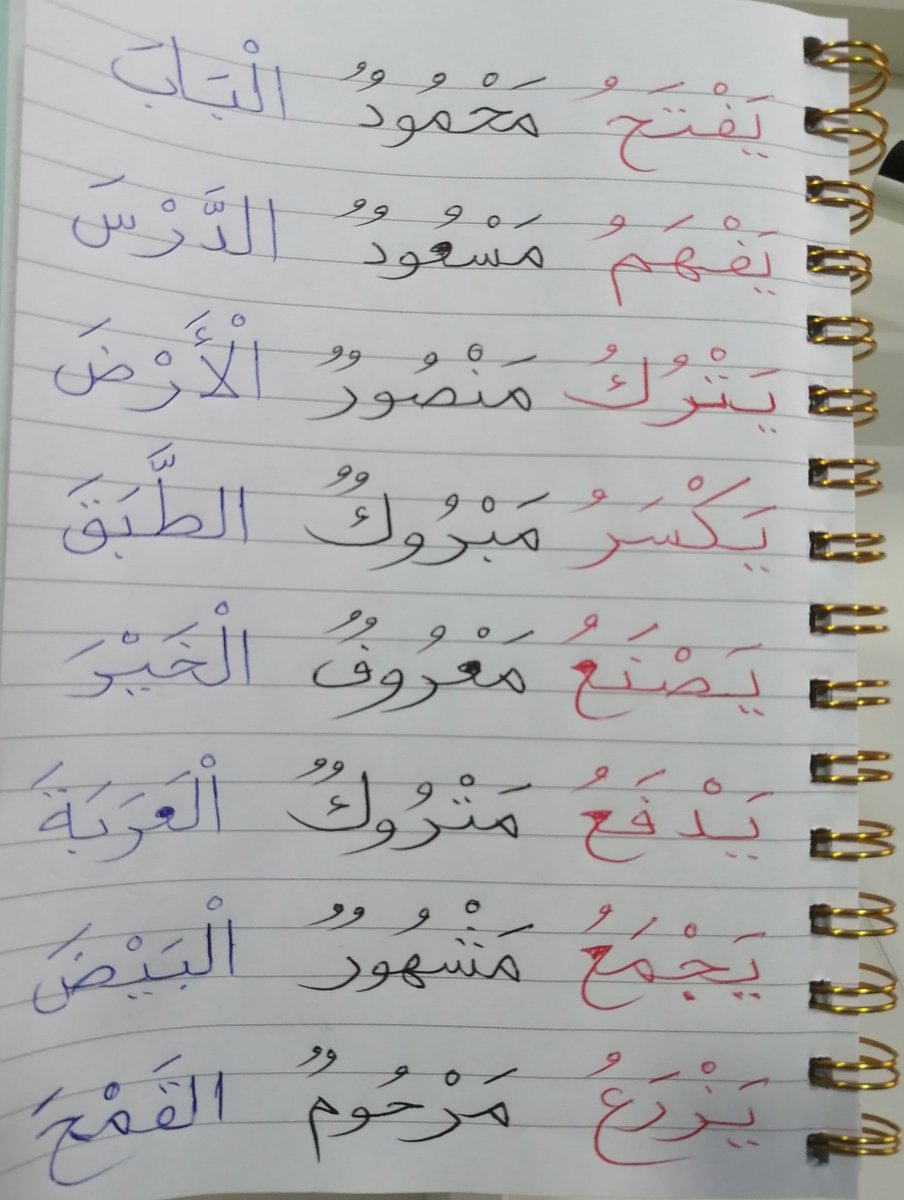 يَفْتَحُ مَحْمُودٌ الْبَابَ
يَفْهَمُ مَسْعُودٌ الدَّرْسَ
يَتْرُكُ مَنْصُورٌ الْأَرْضَ
يَكْسَرُ مَبْرُوكٌ الطَّبَقَ
يَصْنَعُ مَعْرُوفٌ الْخَيْرَ
يَدْفَعُ مَتْرُوكٌ الْعَرَبَةَ
يَجْمَعُ مَشْهُورٌ الْبَيْضَ
يَزْرَعُ مَرْحُومٌ القَمْحَ